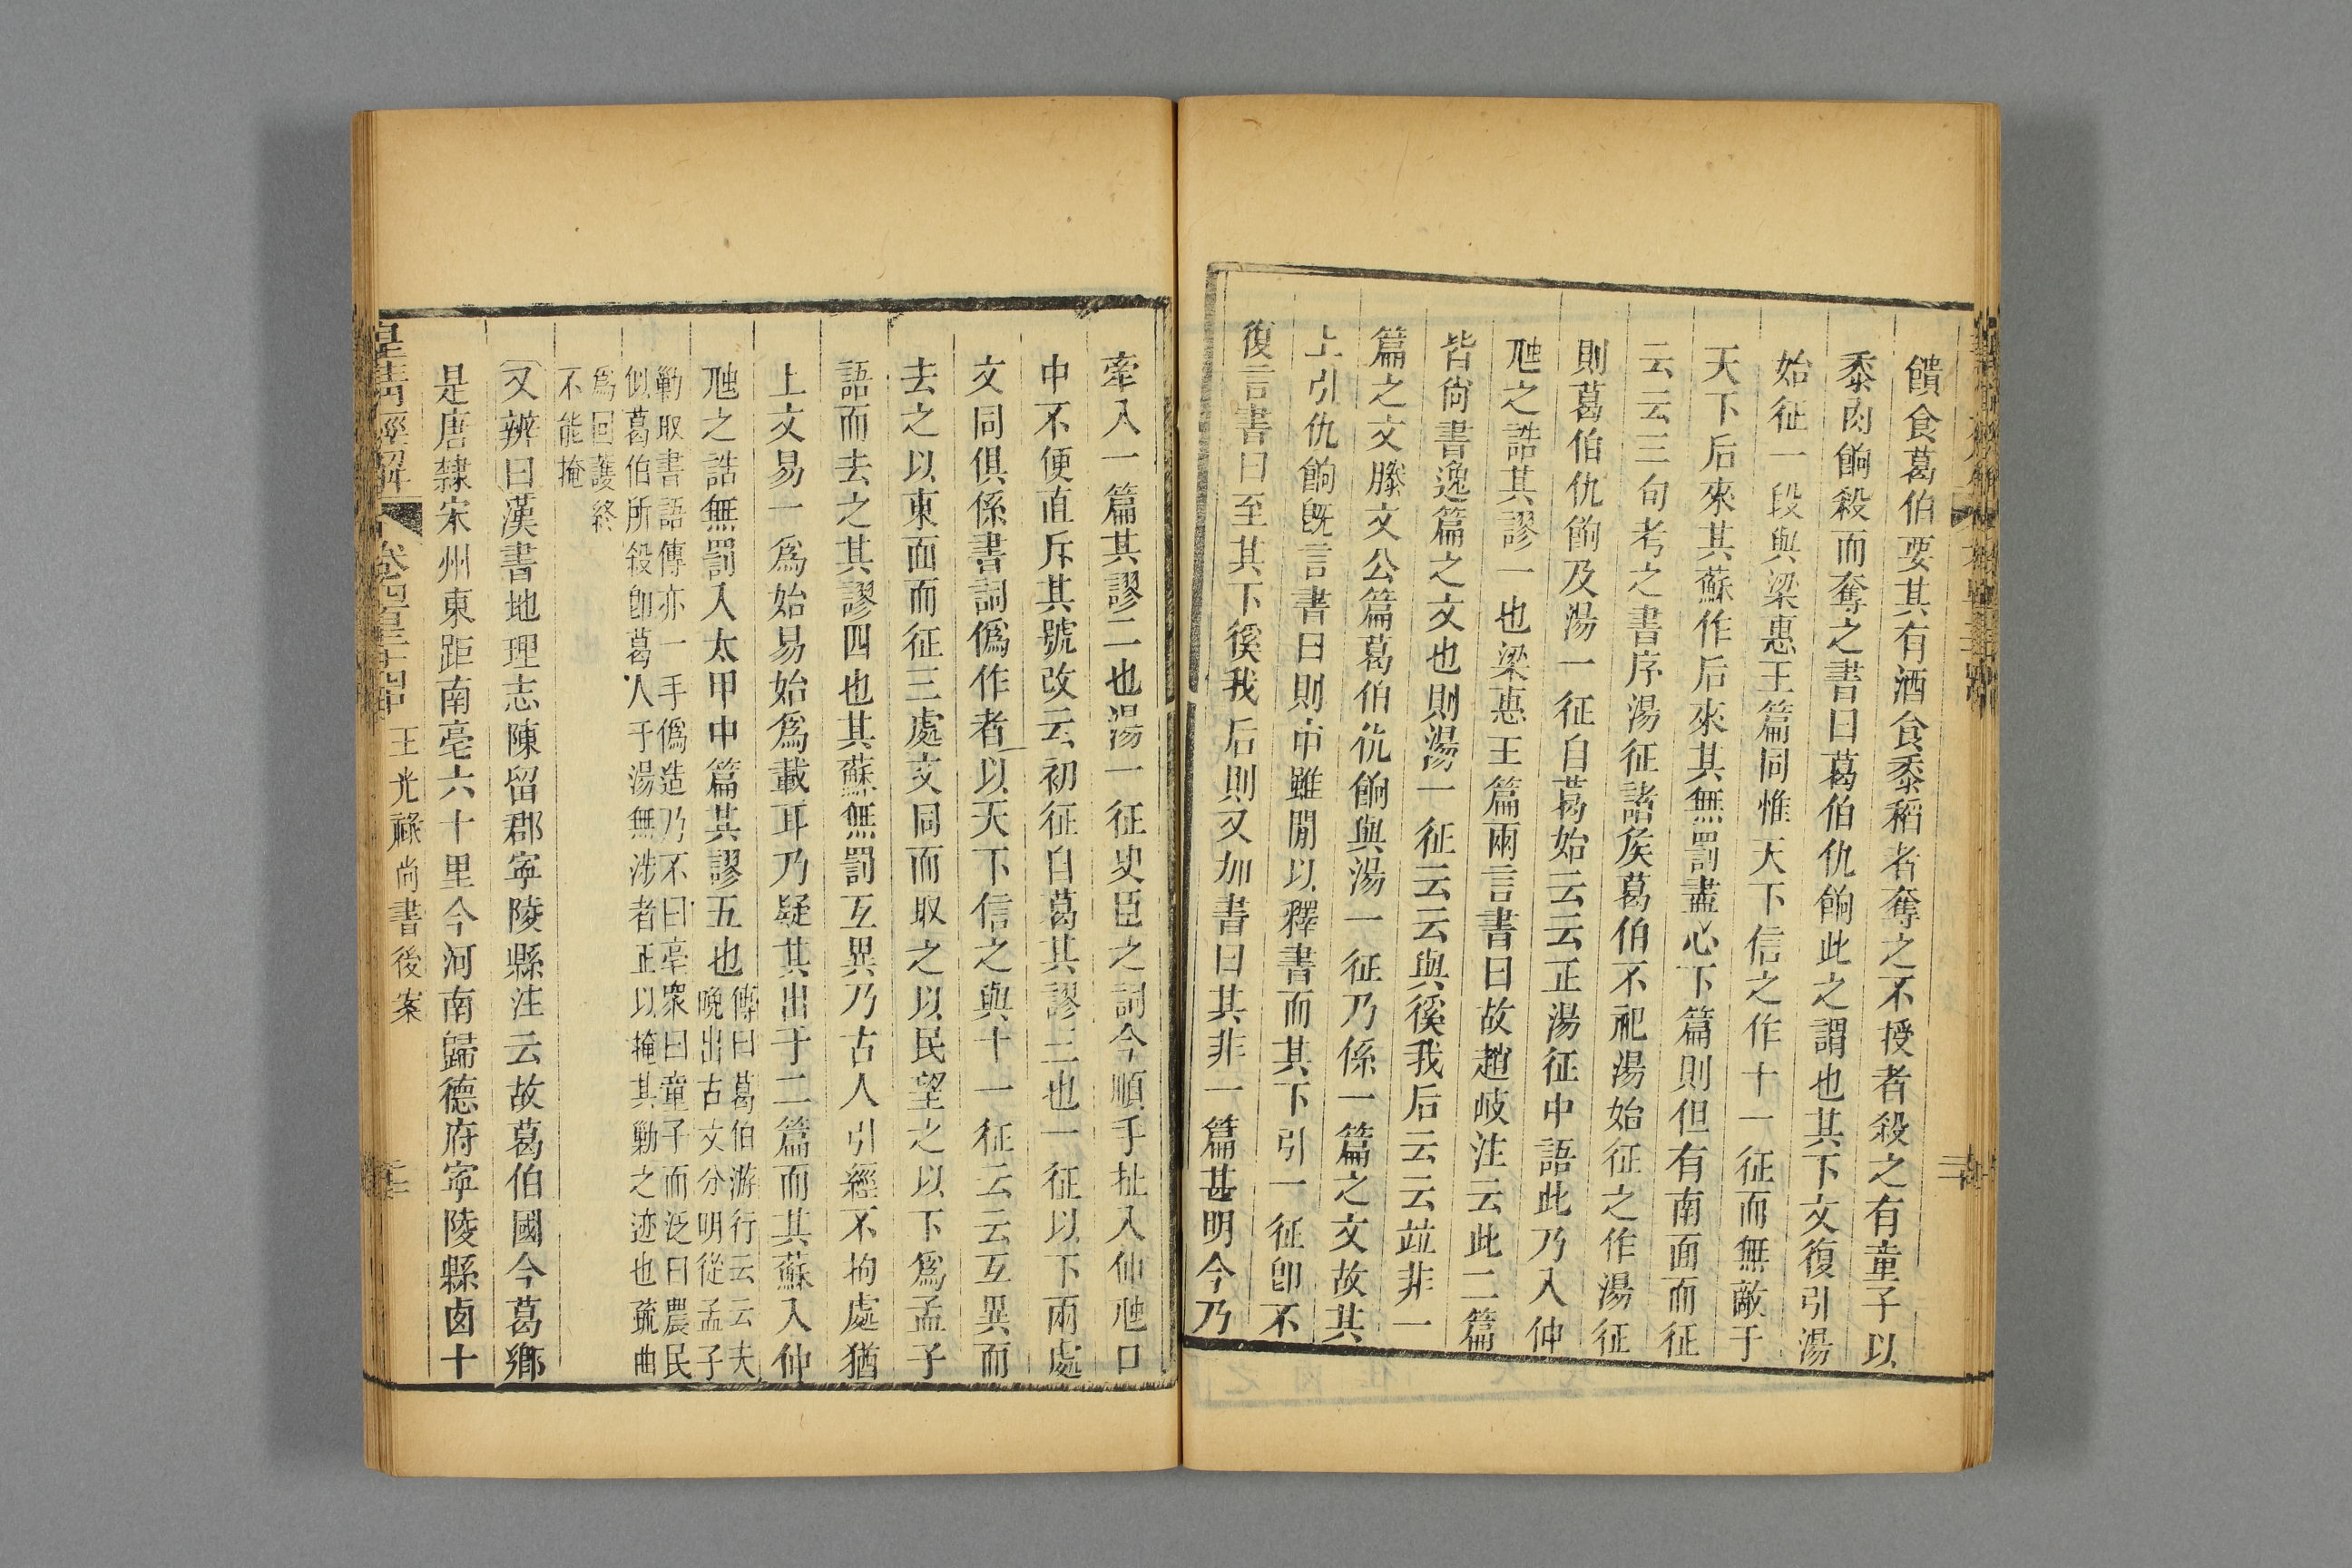 饋食葛伯要其有酒食黍稻者奪之不授者殺之有童子以
黍肉餉殺而奪之書曰葛伯仇餉此之謂也其下文復引湯
始征一段與梁惠王篇同惟天下信之作十一征而無敵于
天下后來其蘇作后來其無罰盡心下篇則但有南面而征
云云三句考之書序湯征諸侯葛伯不祀湯始征之作湯征
則葛伯仇餉及湯一征自葛始云云正湯征中語此乃入仲
虺之誥其謬一也梁惠王篇兩言書曰故趙岐注云此二篇
皆尙書逸篇之文也則湯一征云云與徯我后云云竝非一
篇之文滕文公篇葛伯仇餉與湯一征乃係一篇之文故其
上引仇餉旣言書曰則中雖閒以釋書而其下引一征卽不
復言書曰至其下徯我后則又加書曰其非一篇甚明今乃
牽入一篇其謬二也湯一征史臣之詞今順手扯入仲虺口
中不便直斥其號改云初征自葛其謬三也一征以下兩處
文同俱係書詞僞作者以天下信之與十一征云云互異而
去之以東面而征三處文同而取之以民望之以下爲孟子
語而去之其謬四也其蘇無罰互異乃古人引經不拘處猶
上文易一爲始易始爲載耳乃疑其出于二篇而其蘇入仲
虺之誥無罰入太甲中篇其謬五也傳曰葛伯游行云云夫
晚出古文分明從孟子
勦取書語傳亦一手僞造乃不曰亳眾曰童子而泛曰農民
似葛伯所殺卽葛人于湯無涉者正以掩其勦之迹也疏曲
爲回護終
不能掩
又辨曰漢書地理志陳留郡寧陵縣注云故葛伯國今葛鄉
是唐隸宋州東距南亳六十里今河南歸德府寧陵縣卤十
皇淸經解 卷四百三十四中 王光祿尙書後案